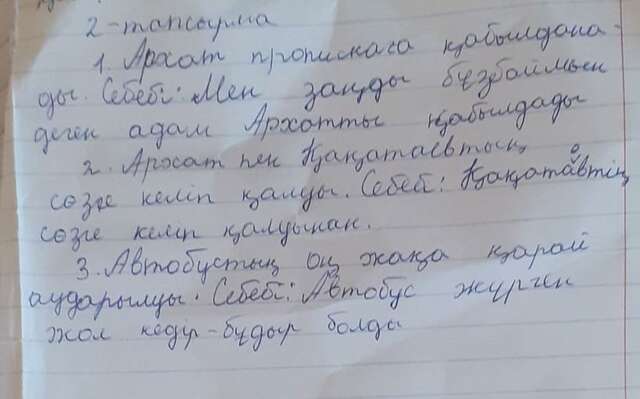 2-тапсырма
1. Архат пропискаға қабылдана-
ды. Себебі: Мен заңды бұзбаймын
деген адам Архатты қабылдады
2. Архат пен Қақатаевтың
сөзге келіп қалуы. Себебі: Қақатаевтің
сөзге келіп қалуынан.
3. Автобустың оң жақа қарай
аударылуы. Себебі: Автобус жүрген
жол кедір-бұдыр болды